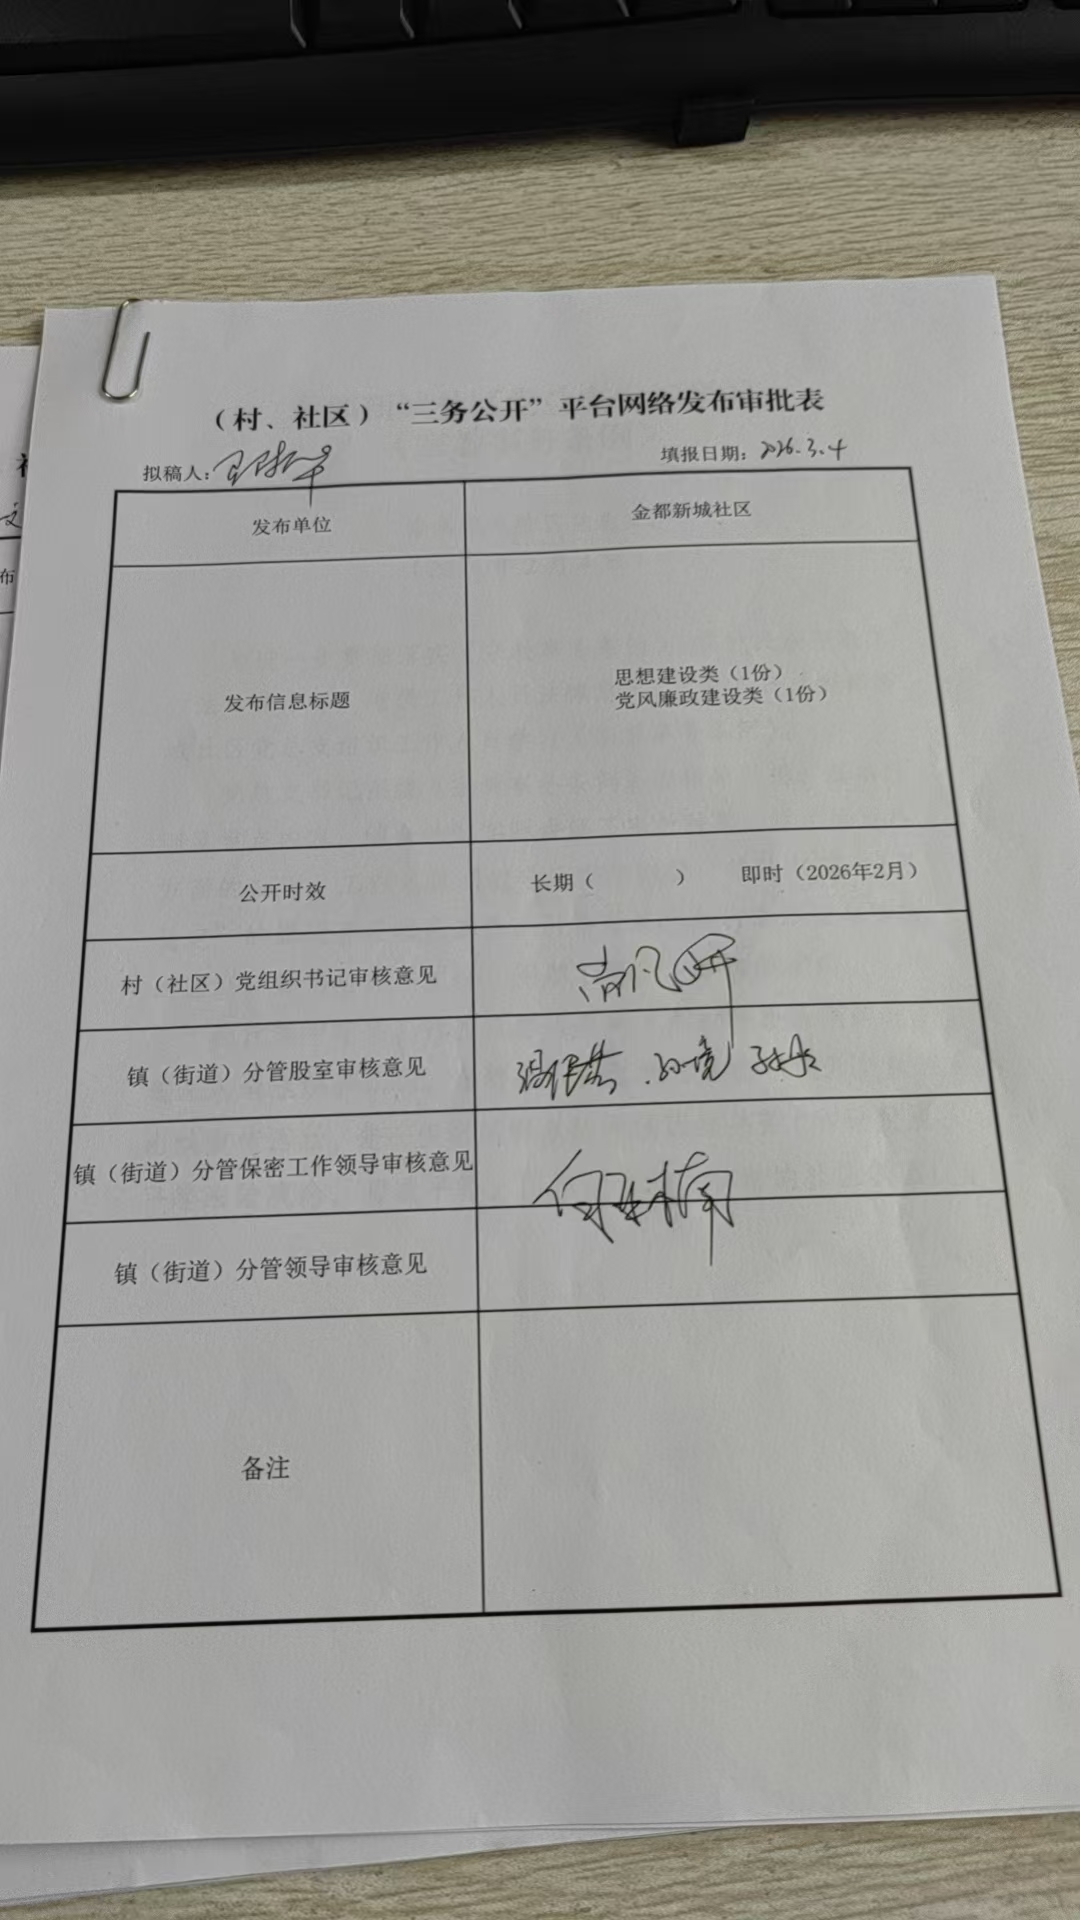 （村、社区）“三务公开”平台网络发布审批表
拟稿人：
填报日期：2026.3.4
发布单位
金都新城社区
发布信息标题
思想建设类（1份）
党风廉政建设类（1份）
公开时效
长期（ ） 即时（2026年2月）
村（社区）党组织书记审核意见
镇（街道）分管股室审核意见
镇（街道）分管保密工作领导审核意见
镇（街道）分管领导审核意见
备注